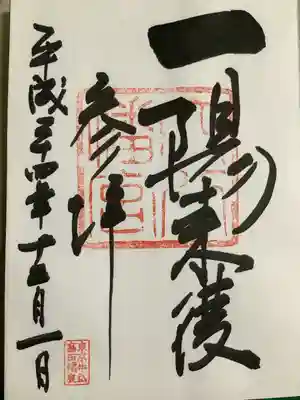 一陽来復
参拝
平成二十四年十二月一日